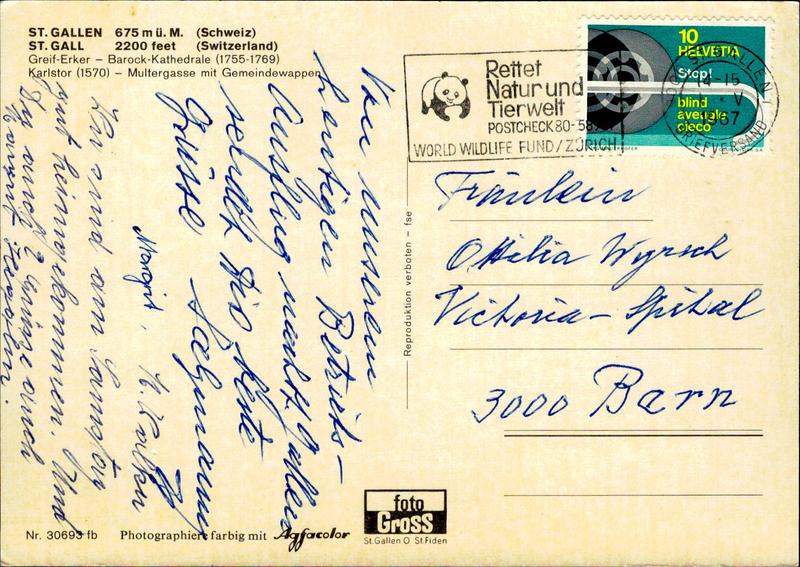 ST. GALLEN 675 m ü. M. (Schweiz)
ST. GALL 2200 feet (Switzerland)
Greif-Erker – Barock-Kathedrale (1755-1769)
Karlstor (1570) – Multergasse mit Gemeindewappen
Von unserem
heutigen Betriebs-
Ausflug nach St. Gallen
sendet Dir beste
Grüsse
Margrit,
Wir sind am Samstag
gut heimgekommen. Und
Reproduktion verboten – fse
Rettet
Natur und
Tierwelt
POSTCHECK 80-58
WORLD WILDLIFE FUND / ZÜRICH
10
HELVETIA
Stop!
blind
aveugle
cieco
ST. GALLEN 1
14-15
V
1967
BRIEFVERSAND
Fräulein
Ottilia Wyrsch
Victoria-Spital
3000 Bern
Nr. 30693 fb Photographiere farbig mit Agfacolor
foto
Gross
St. Gallen O St. Fiden